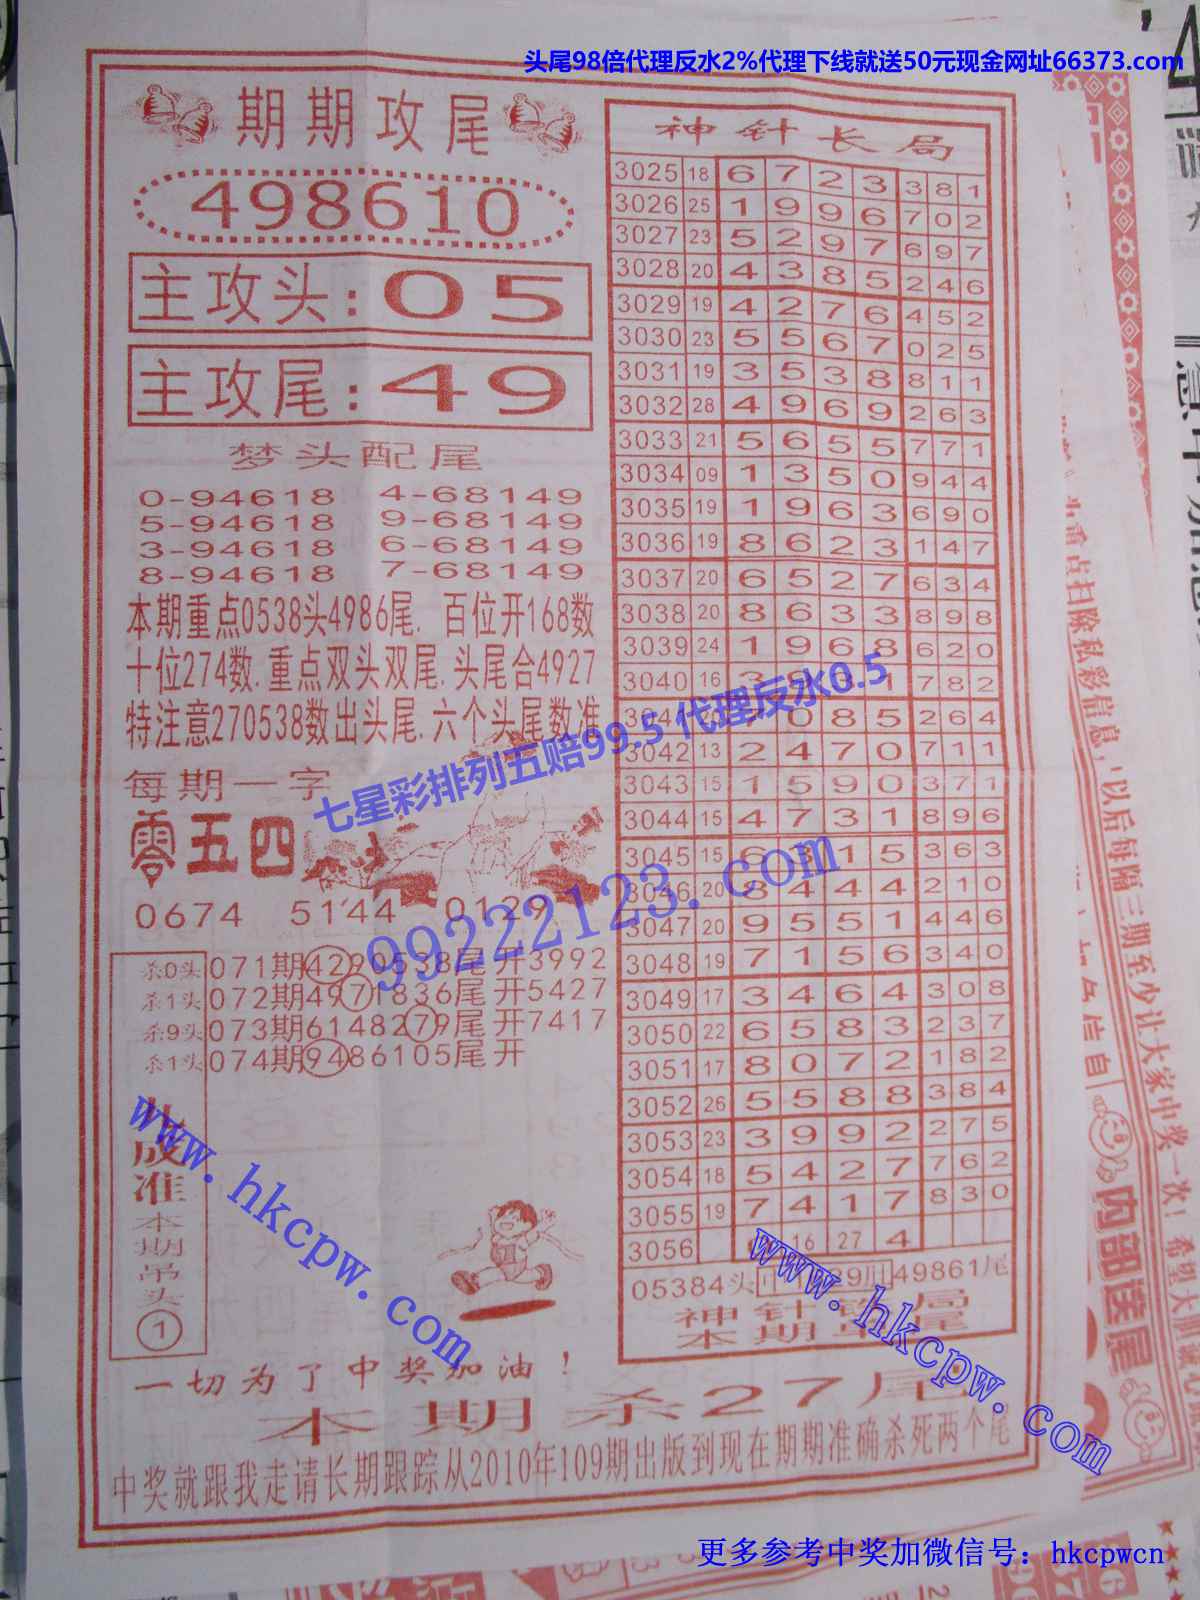 头尾98倍代理反水2%代理下线就送50元现金网址66373.com
期期攻尾
498610
主攻头:05
主攻尾:49
梦头配尾
0-94618 4-68149
5-94618 9-68149
3-94618 6-68149
8-94618 7-68149
本期重点0538头4986尾. 百位开168数
十位274数.重点双头双尾.头尾合4927
特注意270538数出头尾.六个头尾数准
每期一字
零五四
0674 5144 0129
杀0头 071期4290538尾开3992
杀1头 072期4971836尾开5427
杀9头 073期6148279尾开7417
杀1头 074期9486105尾开
九成准
本期吊头
1
一切为了中奖加油!
本期杀27尾
中奖就跟我走请长期跟踪从2010年109期出版到现在期期准确杀死两个尾
神针长局
3025 18 6 7 2 3 3 8 1
3026 25 1 9 9 6 7 0 2
3027 23 5 2 9 7 6 9 7
3028 20 4 3 8 5 2 4 6
3029 19 4 2 7 6 4 5 2
3030 23 5 5 6 7 0 2 5
3031 19 3 5 3 8 8 1 1
3032 28 4 9 6 9 2 6 3
3033 21 5 6 5 5 7 7 1
3034 09 1 3 5 0 9 4 4
3035 19 1 9 6 3 6 9 0
3036 19 8 6 2 3 1 4 7
3037 20 6 5 2 7 6 3 4
3038 20 8 6 3 3 8 9 8
3039 24 1 9 6 8 6 2 0
3040 16 3 1 7 8 2
0 8 5 2 6 4
3042 13 2 4 7 0 7 1 1
3043 15 1 5 9 0 3 7 1
3044 15 4 7 3 1 8 9 6
3045 15 6 3 1 5 3 6 3
3046 20 8 4 4 4 2 1 0
3047 20 9 5 5 1 4 4 6
3048 19 7 1 5 6 3 4 0
3049 17 3 4 6 4 3 0 8
3050 22 6 5 8 3 2 3 7
3051 17 8 0 7 2 1 8 2
3052 26 5 5 8 8 3 8 4
3053 23 3 9 9 2 2 7 5
3054 18 5 4 2 7 7 6 2
3055 19 7 4 1 7 8 3 0
3056 16 27 4
05384头 49861尾
神针
本期
七星彩排列五赔99.5 代理反水0.5
99222123.com
www.hkcpw.com
www.hkcpw.com
扫除私彩信息,以后每隔三期至少让大家中奖一次!
内部送尾
更多参考中奖加微信号：hkcpwcn